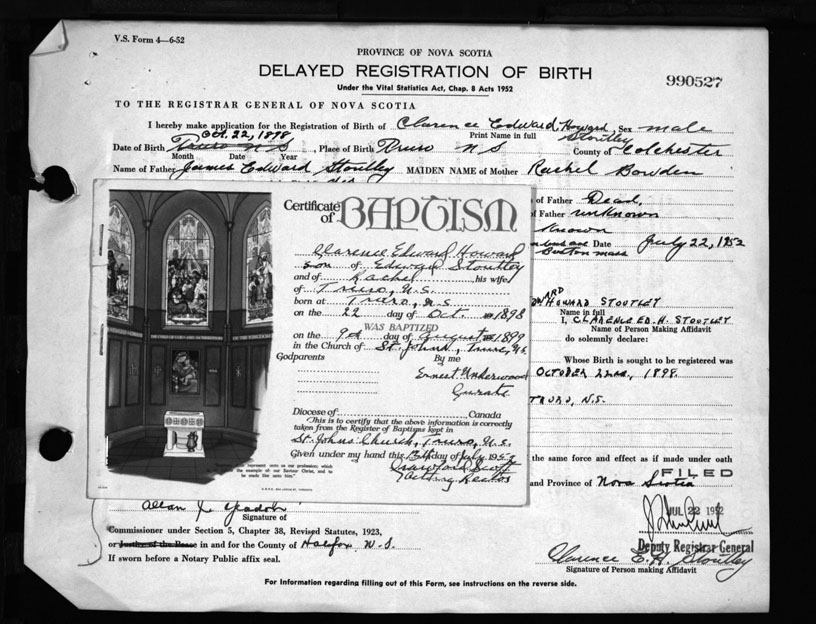 V.S. Form 4—6-52
PROVINCE OF NOVA SCOTIA
DELAYED REGISTRATION OF BIRTH
990527
Under the Vital Statistics Act, Chap. 8 Acts 1952
TO THE REGISTRAR GENERAL OF NOVA SCOTIA
I hereby make application for the Registration of Birth of Clarence Edward Howard Sex male
Oct. 22, 1898 Print Name in full Stoutley
Date of Birth Truro N S, Place of Birth Truro N S County of Colchester
Month Date Year
Name of Father James Edward Stoutley MAIDEN NAME of Mother Rachel Bowden
of Father Dead
of Father unknown
Known
Date July 22, 1952
Boston mass
Certificate of BAPTISM
Clarence Edward Howard
Son of Edward Stoutley
and of Rachel, his wife
of Truro, N.S.
born at Truro, N.S.
on the 22 day of Oct. 1898
WAS BAPTIZED
on the 9th day of August 1899
in the Church of St John's, Truro, N.S.
Godparents By me
Ernest Underwood
Curate
Diocese of Canada
This is to certify that the above information is correctly
taken from the Register of Baptisms kept in
St. Johns Church, Truro, N.S.
Given under my hand this 13th day of July 1952
Crawford Scott
Acting Rector
represent unto us our profession; which
the example of our Saviour Christ, and to
be made like unto him."
ARD
HOWARD STOUTLEY
Name in full
I, CLARENCE ED. H. STOUTLEY
Name of Person Making Affidavit
do solemnly declare:
Whose Birth is sought to be registered was
OCTOBER 22nd, 1898.
TRURO, N.S.
the same force and effect as if made under oath
FILED
and Province of Nova Scotia
JUL 22 1952
Deputy Registrar General
Allan
Signature of
Commissioner under Section 5, Chapter 38, Revised Statutes, 1923,
or Justice of the Peace in and for the County of Halifax, N.S.
If sworn before a Notary Public affix seal.
Clarence E. H. Stoutley
Signature of Person making Affidavit
For Information regarding filling out of this Form, see instructions on the reverse side.